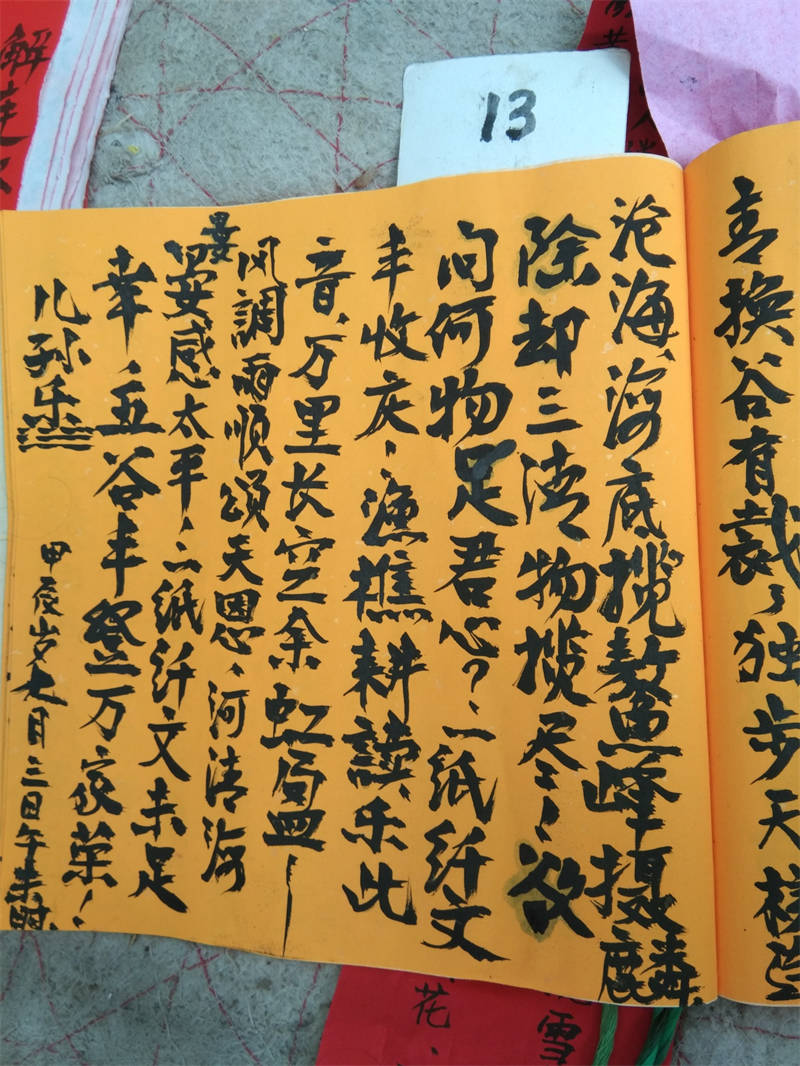 13
青换谷有裁、独步天
沧海、海底揽鳌峰摄麟、
除却三清物揽尽、欲
问何物足君心？一纸纤文
丰收庆、渔樵耕读乐此
音、万里长空余虹局
风調雨順頌天恩、河清海
晏
安感太平、一纸纤文未足
幸、五谷丰登万家荣、
儿孙乐
甲辰岁七月三日午未時
解
花、
雪